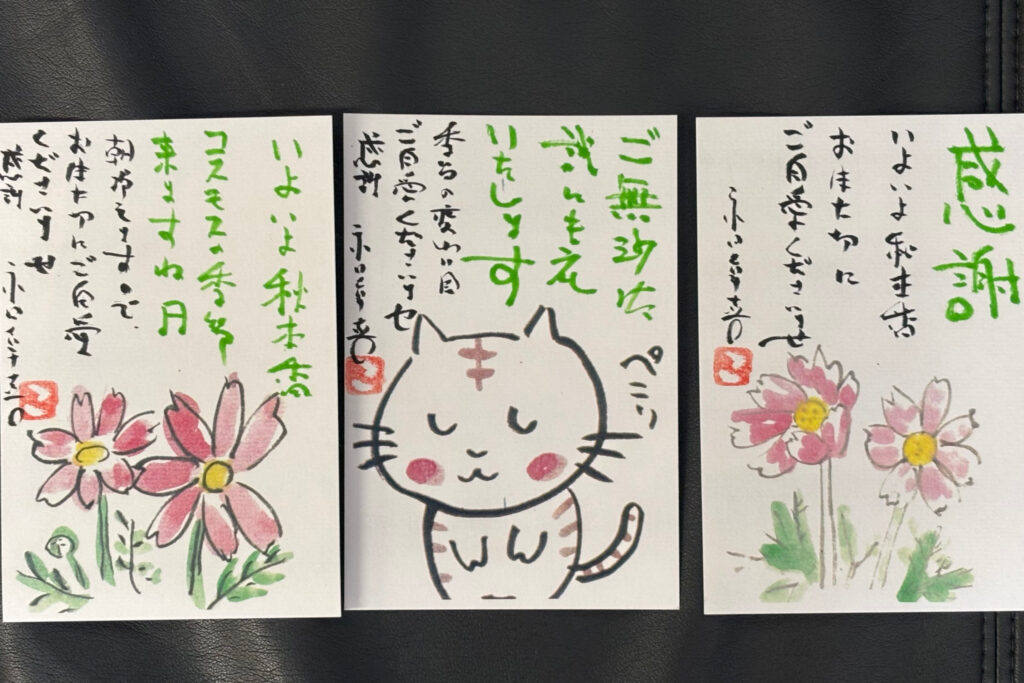 いよいよ秋本番
コスモスの季節
来ますね
朝冷えますので、
お体大切にご自愛
くださいませ
感謝
ご無沙汰
誠に
いたします
季節の変わり目
ご自愛くださいませ
感謝
ぺこり
感謝
いよいよ秋本番
お体大切に
ご自愛くださいませ